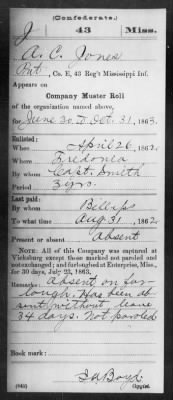 (Confederate.)
J 43 Miss.
A. C. Jones
Pvt, Co. E, 43 Reg't Mississippi Inf.
Appears on
Company Muster Roll
of the organization named above,
for June 30 to Oct. 31, 1863.
Enlisted:
When April 26, 1862.
Where Fredonia
By whom Capt. Smith
Period 3 yrs.
Last paid:
By whom Billups
To what time Aug 31, 1862.
Present or absent Absent
NOTE: All of this Company was captured at
Vicksburg except those marked not paroled and
not exchanged; and furloughed at Enterprise, Miss.,
for 30 days, July 23, 1863.
Remarks: Absent on fur-
lough. Has been ab
sent without leave
34 days. Not paroled
Book mark:
Boyd
(642) Copyist.